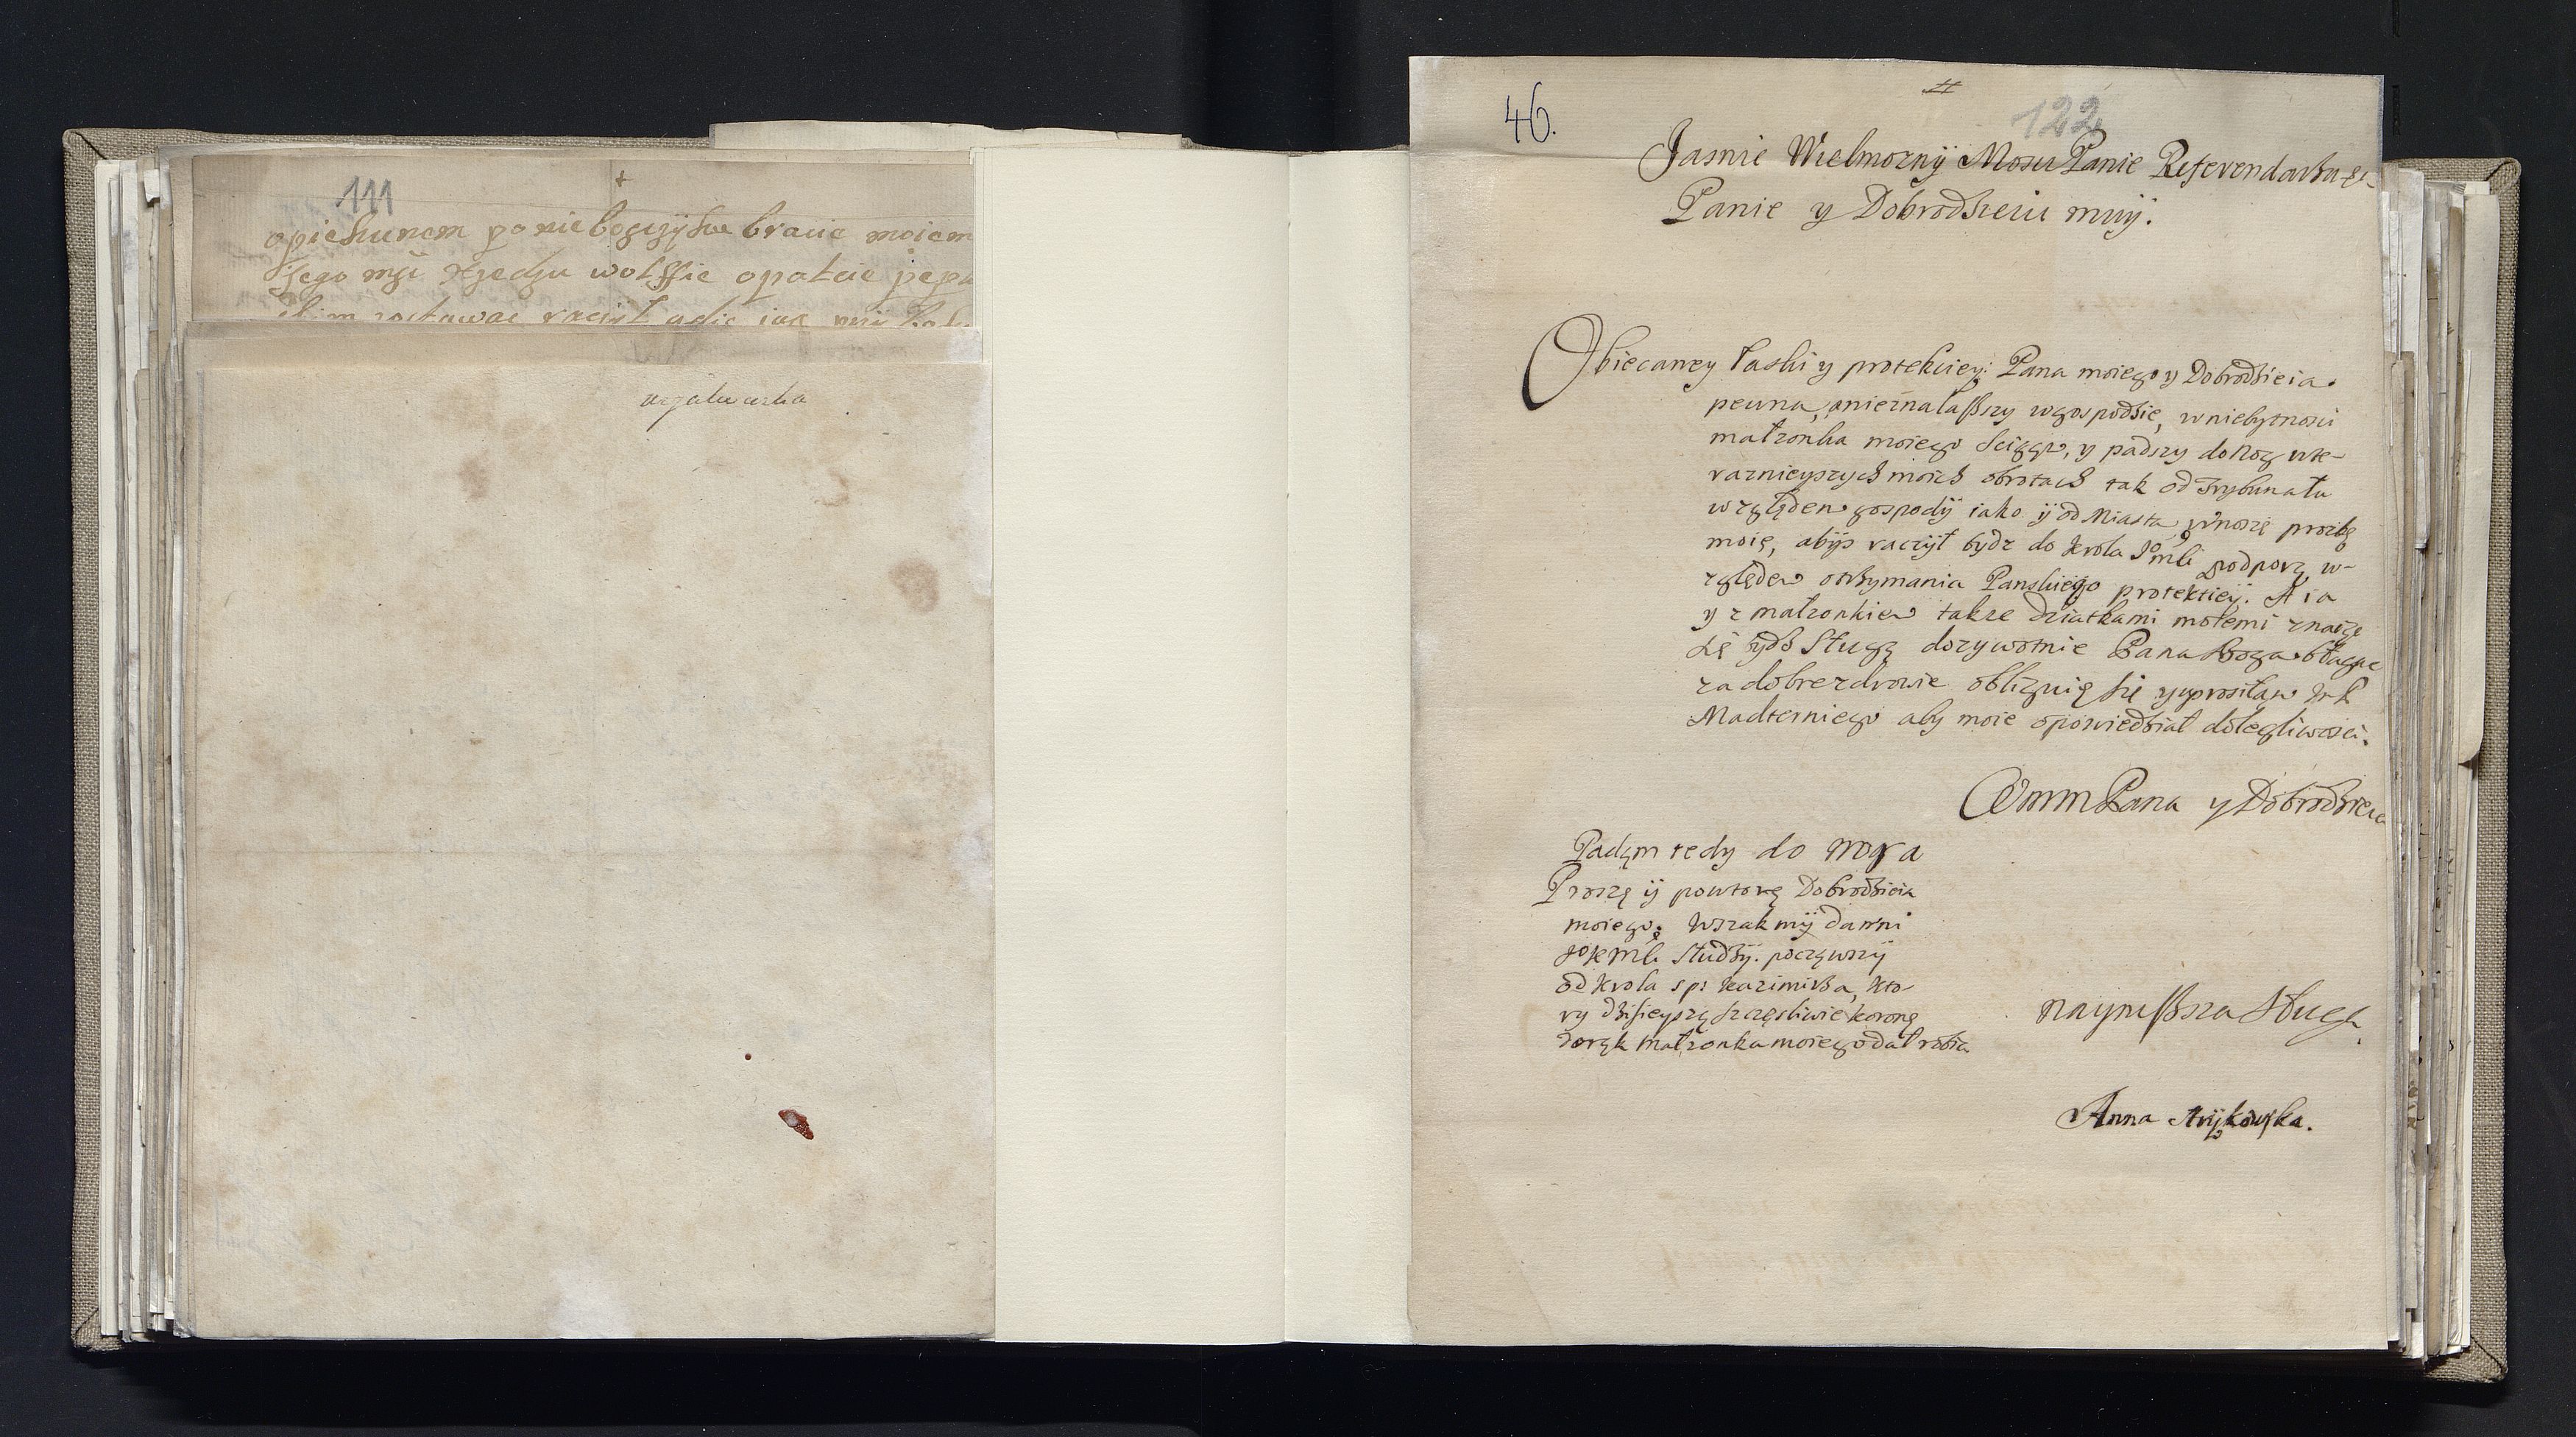 111
+
opiekunem po niebozczyku bracie moiem
jego mści xjędzu wolffie opatcie pepli
skim zostawac raczył
46.
122
Jasnie Wielmozny Mosci Panie Referendarzu
Panie y Dobrodzieiu muy.
Obiecaney łaski y protekciey Pana moiego y Dobrodzieia
pewna, a nieznalaszszy w gospodzie, w niebytnosci
małzonka moiego ścięgę, y padszy do nog w te-
raznieyszych moich obrotach tak od Trybunału
względem gospody iako ÿ od Miasta wnoszę prozbę
moię, abÿs raczÿł bÿdz do Krola Jo mści podporą, w-
zględem otrzymania Panskiego protektiey. A ia
y z małzonkiem takze dziatkami mołemi znaczę
się bÿdz Sługą dozywotnie Pana Boga błagac
za dobre zdrowie obliguię się y uprosiłam
Madterniego aby moie opowiedział dolegliwosci.
Wmm Pana y Dobrodzieia
Padam tedy do nog a
Proszę ÿ powtorę Dobrodzieia
moiego. Wszak mÿ dawni
JoKMści słudzÿ. począwszÿ
od Krola sp: Kazimirza, kto-
ry dzisieyszą szczęsliwie koronę
do rąk małzonka moiego dał robic
nayniszsza Sługa
Anna